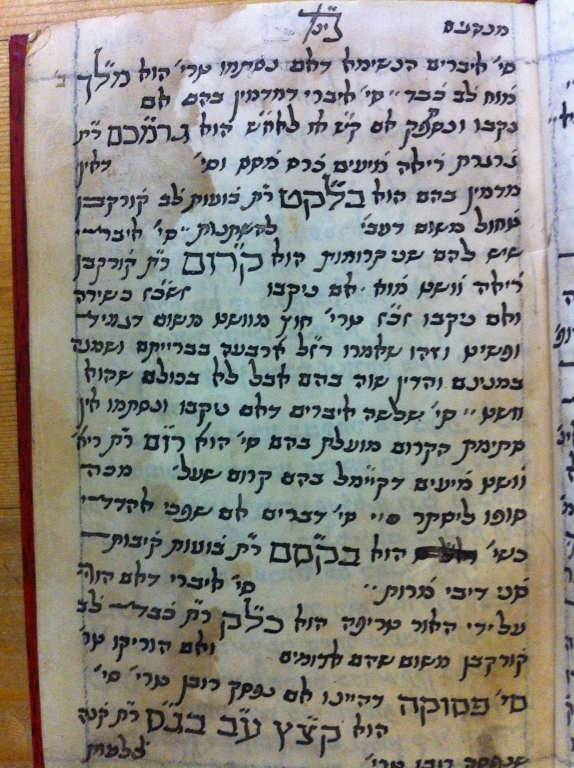 סי' איברים הנשימא דאם נסתמו טרי' הוא מלך
מוח לב כבד סי' איברי דמדמין בהם אם
נקבו ונספק אם קוץ או לאו הוא גרמכם ר"ת
גרגרת ריאה מיעים כרס מסס וסי' דאין
מדמין בהם הוא בלקט ר"ת בועות לב קורקבן
טחול משום דעבי' להשתנות סי' איברי
שיש להם שני קרומות הוא קרום ר"ת קורקבן
ריאה וושט מוח אם ניקבו זשב"ז כשירה
ואם ניקבו זב"ז טרי' חוץ מוושט משום דגמיד
ופשיט וזהו שאמרו רז"ל ארבעה בברייתם ושמנה
במנינם והדין שוה בהם אבל לא בכולם שהוא
וושט סי' שלשה איברים דאם ניקבו ונסתמו אין
סתימת הקרום מועלת בהם סי' הוא רום ר"ת ריא'
וושט מיעים דקיימל בהם קרום שעל' מכה
סופו ליסתר סי' דברים אם שפכי אהדדי
כשי' הוא בקמם ר"ת בועות קיבות
מרות סי' איברי דאם הוריקו
על ידי האור טריפה הוא כלק ר"ת כבד לב
קורקבן משום שהם אדומים ואם הוריקו טר'
סי' פסוקה דהיינו אם נפסק רובן טרי' סי'
הוא קצץ עב בגס ר"ת קנה
צלעות
רובן טרי'